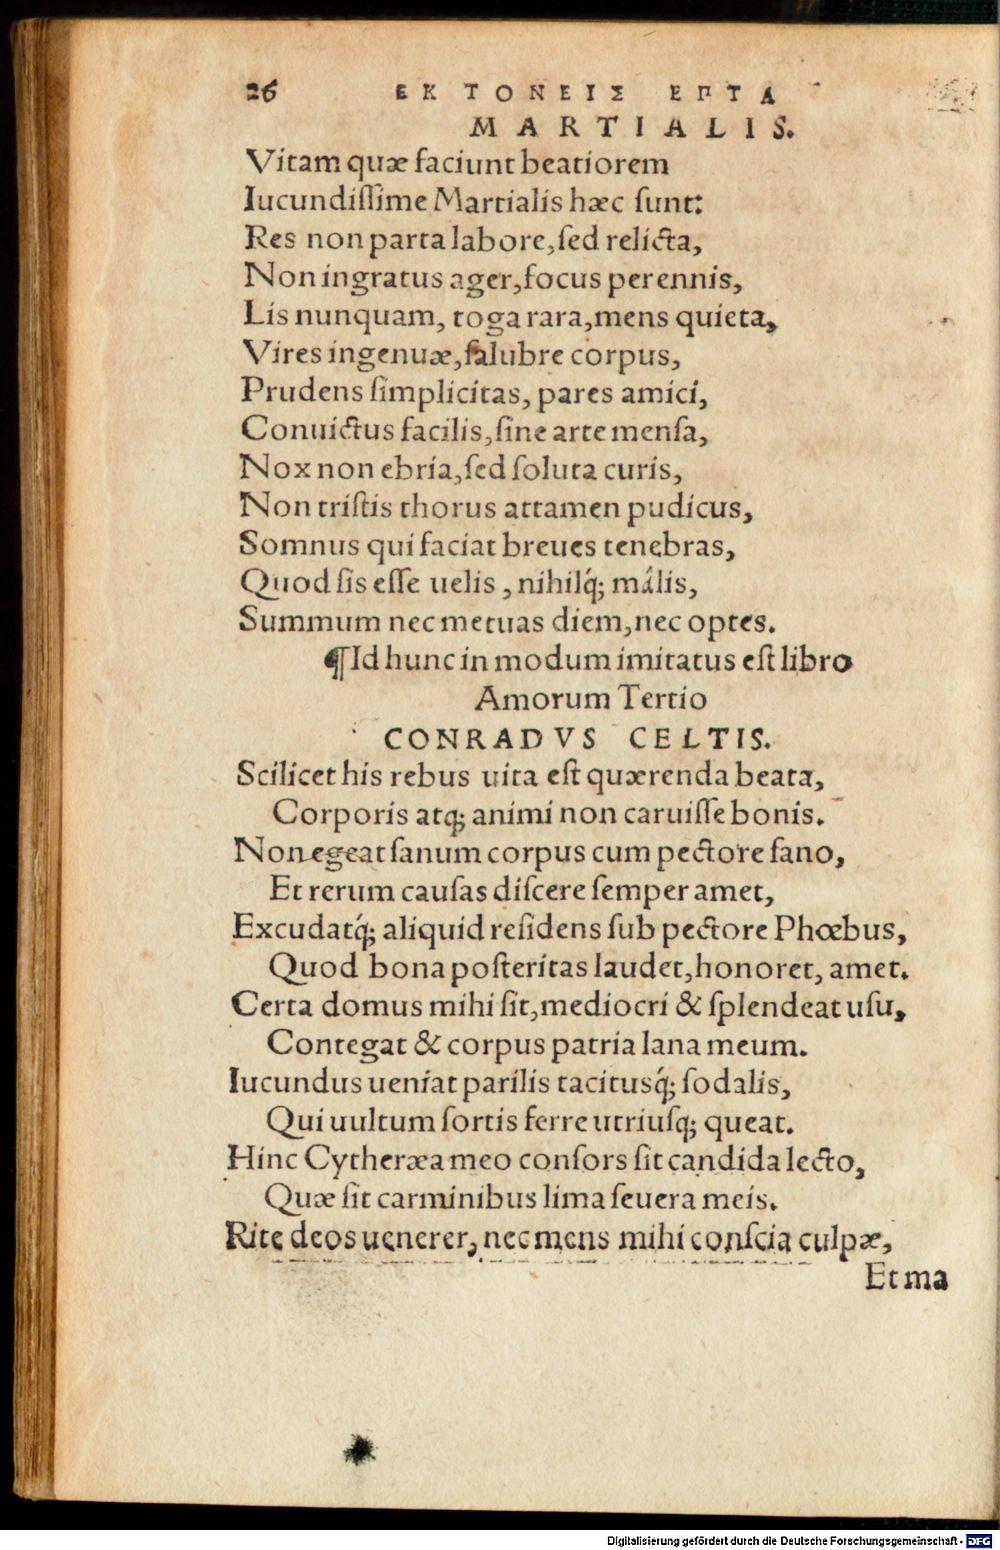 26 ΕΚ ΤΟΝΕΙΣ ΕΠΤΑ
MARTIALIS.
Vitam quæ faciunt beatiorem
Iucundiſſime Martialis hæc ſunt:
Res non parta labore, ſed relicta,
Non ingratus ager, focus perennis,
Lis nunquam, toga rara, mens quieta,
Vires ingenuæ, ſalubre corpus,
Prudens ſimplicitas, pares amici,
Conuictus facilis, ſine arte menſa,
Nox non ebria, ſed ſoluta curis,
Non triſtis thorus attamen pudicus,
Somnus qui faciat breues tenebras,
Quod ſis eſſe uelis, nihilq́; mâlis,
Summum nec metuas diem, nec optes.
¶Id hunc in modum imitatus eſt libro
Amorum Tertio
CONRADVS CELTIS.
Scilicet his rebus uita eſt quærenda beata,
Corporis atq; animi non caruiſſe bonis.
Non egeat ſanum corpus cum pectore ſano,
Et rerum cauſas diſcere ſemper amet,
Excudatq́; aliquid reſidens ſub pectore Phœbus,
Quod bona poſteritas laudet, honoret, amet.
Certa domus mihi ſit, mediocri & ſplendeat uſu,
Contegat & corpus patria lana meum.
Iucundus ueniat parilis tacitusq́; ſodalis,
Qui uultum ſortis ferre utriuſq; queat.
Hinc Cytheræa meo conſors ſit candida lecto,
Quæ ſit carminibus lima ſeuera meis.
Rite deos uenerer, nec mens mihi conſcia culpæ,
Et ma
Digitalisierung gefördert durch die Deutsche Forschungsgemeinschaft - DFG